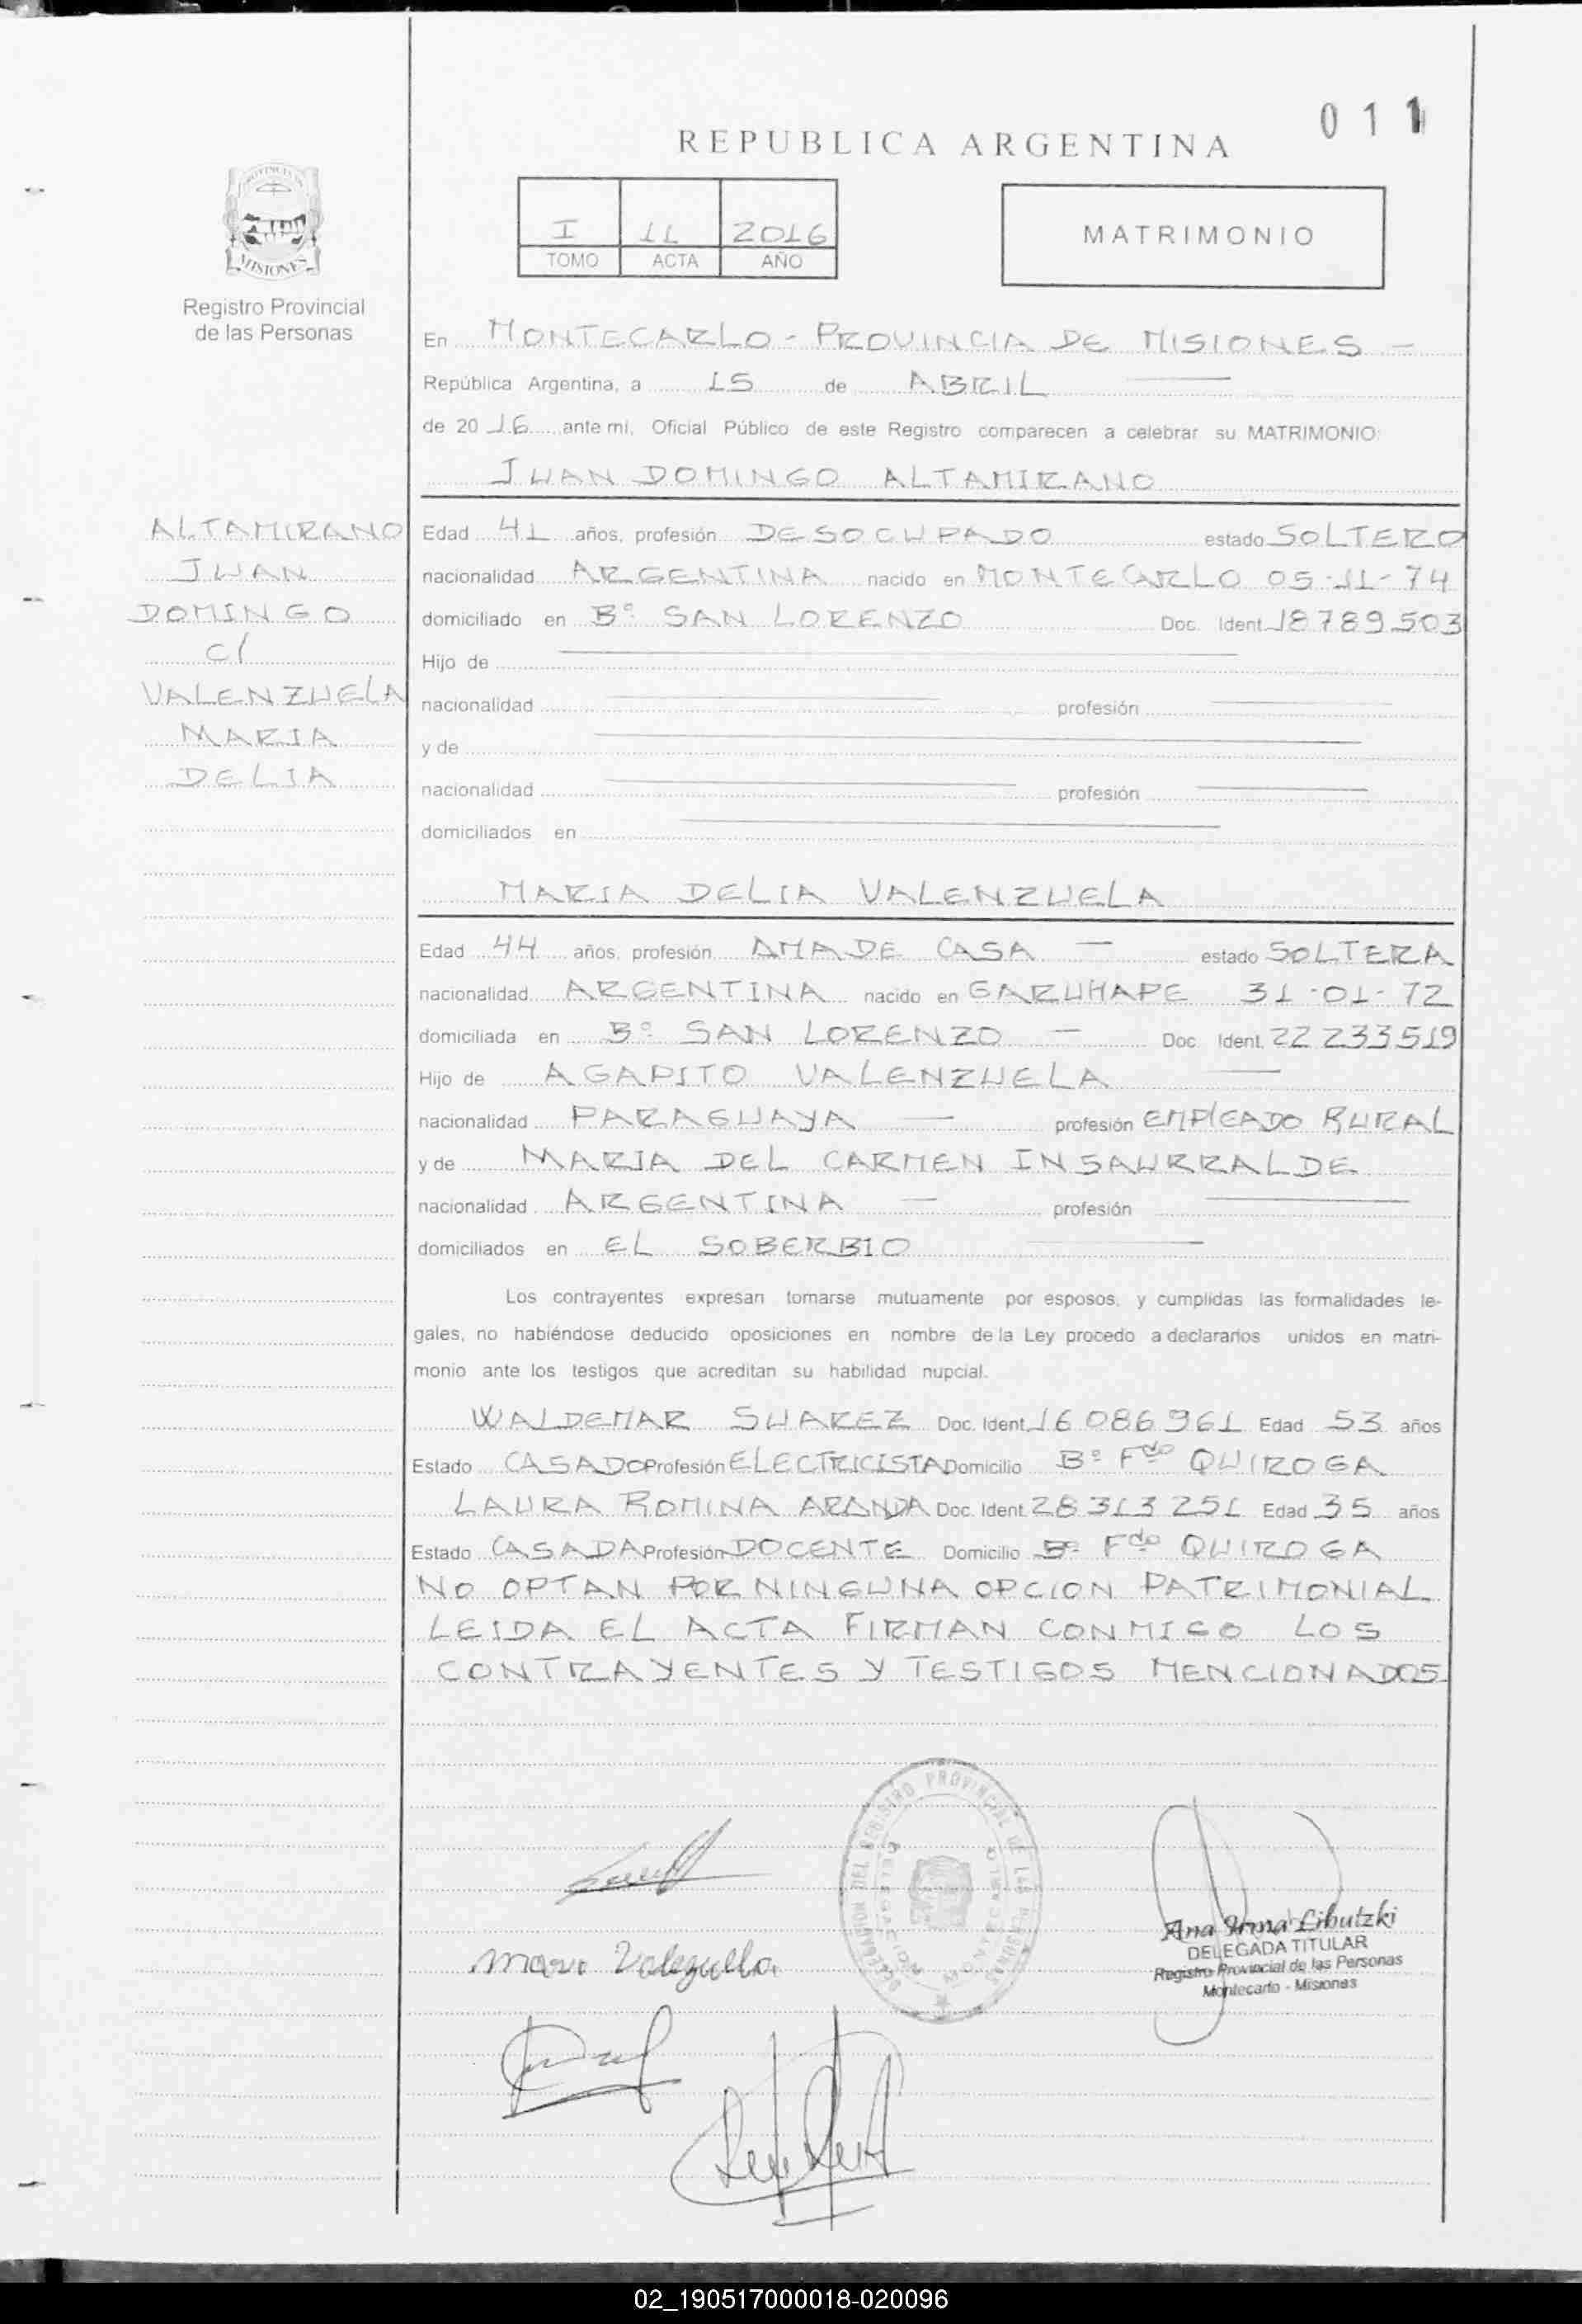 011
REPUBLICA ARGENTINA
PROVINCIA DE
MISIONES
Registro Provincial
de las Personas
I 11 2016
TOMO ACTA AÑO
MATRIMONIO
En MONTECARLO - PROVINCIA DE MISIONES -
República Argentina, a 15 de ABRIL
de 20 16 ante mi, Oficial Público de este Registro comparecen a celebrar su MATRIMONIO:
JUAN DOMINGO ALTAMIRANO
ALTAMIRANO
JUAN
DOMINGO
C/
VALENZUELA
MARIA
DELIA
Edad 41 años, profesión DESOCUPADO estado SOLTERO
nacionalidad ARGENTINA nacido en MONTECARLO 05-11-74
domiciliado en Bº SAN LORENZO Doc. Ident. 18789503
Hijo de
nacionalidad profesión
y de
nacionalidad profesión
domiciliados en
MARIA DELIA VALENZUELA
Edad 44 años, profesión AMA DE CASA - estado SOLTERA
nacionalidad ARGENTINA nacido en GARUHAPE 31-01-72
domiciliada en Bº SAN LORENZO - Doc. Ident. 22 233519
Hijo de AGAPITO VALENZUELA
nacionalidad PARAGUAYA - profesión EMPLEADO RURAL
y de MARIA DEL CARMEN INSAURRALDE
nacionalidad ARGENTINA - profesión
domiciliados en EL SOBERBIO
Los contrayentes expresan tomarse mutuamente por esposos, y cumplidas las formalidades le-
gales, no habiéndose deducido oposiciones en nombre de la Ley procedo a declararlos unidos en matri-
monio ante los testigos que acreditan su habilidad nupcial.
WALDEMAR SUAREZ Doc. Ident. 16 086 961 Edad 53 años
Estado CASADO Profesión ELECTRICISTA Domicilio Bº Fdo QUIROGA
LAURA ROMINA ARANDA Doc. Ident. 28 313 251 Edad 35 años
Estado CASADA Profesión DOCENTE Domicilio Bº Fdo QUIROGA
NO OPTAN POR NINGUNA OPCION PATRIMONIAL
LEIDA EL ACTA FIRMAN CONMIGO LOS
CONTRAYENTES Y TESTIGOS MENCIONADOS
DELEGACION DEL REGISTRO PROVINCIAL DE LAS PERSONAS
Ana Irma Libutzki
DELEGADA TITULAR
Registro Provincial de las Personas
Montecarlo - Misiones
02_190517000018-020096